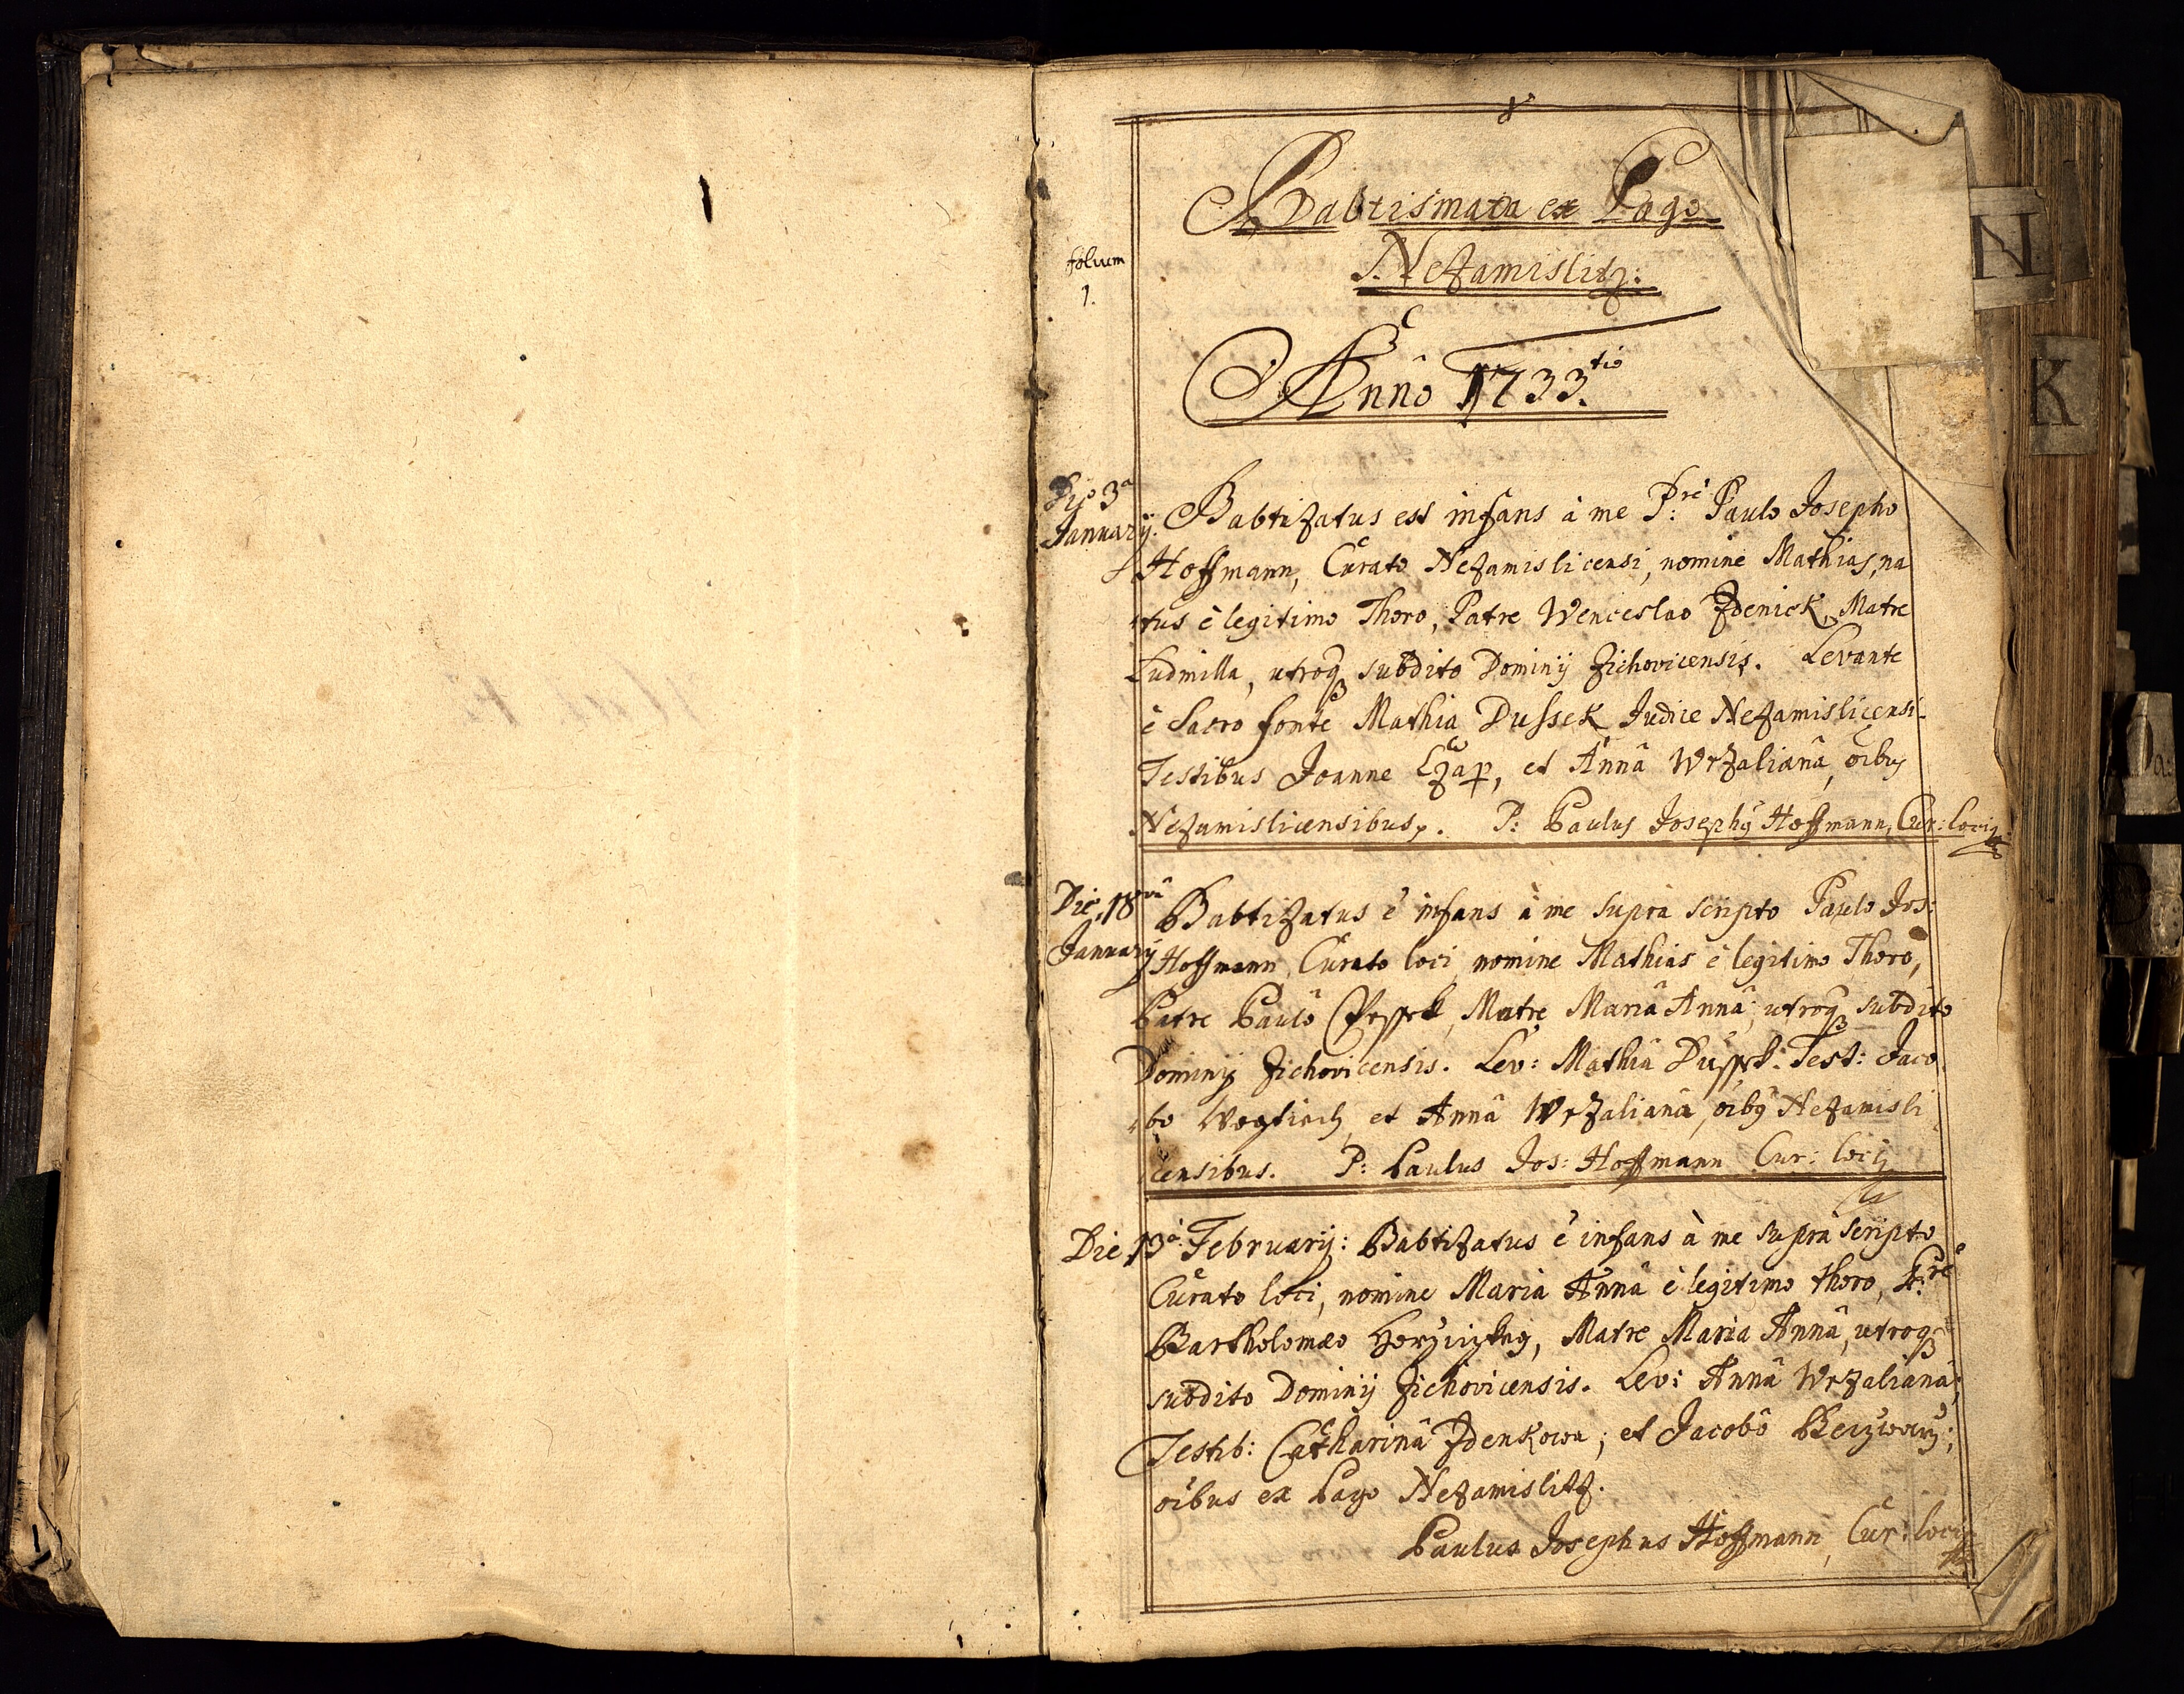 Babtismata ex Pago
Nezamislitz:
folium
1.
Annô 1733tio
Die 3a
January.
Babtizatus est infans à me P:re Paulo Josepho
Hoffmann, Curato Nezamislicensi, nomine Mathias, na
tus è legitimo Thoro, Patre Wenceslao Zdenick, Matre
Ludmilla, utroq subdito Dominij Zichovicensis. Levante
è Sacro fonte Mathia Dussek Judice Nezamislicensi.
Testibus Joanne Czap, et Annâ Wrzalianâ, oibus
Nezamislicensibus. P: Paulus Josephy Hoffmann, Cur: loci
Die 18vâ
January
Babtizatus è infans à me supra scripto Paulo Jos:
Hoffmann Curato loci nomine Mathias è legitimo Thoro,
Patre Paulô Matre Mariâ Annâ, utroq subdito
Dominij Zichovicensis. Lev: Mathia Dussek: Test: Jaco
bo et Annâ Wrzalianâ, oiby Nezamisli
censibus. P: Paulus Jos: Hoffmann Cur: loci
Die 13â February: Babtizatus è infans à me supra scripto
Curato loci, nomine Maria Annâ è legitimo thoro, P:re
Bartholomæo Matre Maria Annâ, utroq
subdito Dominij Zichovicensis. Lev: Annâ Wrzalianâ;
Testib: Catharinâ Zdenkowa; et Jacobô
oibus ex Pago Nezamislitz.
Paulus Josephus Hoffmann, Cur: loci
N
K